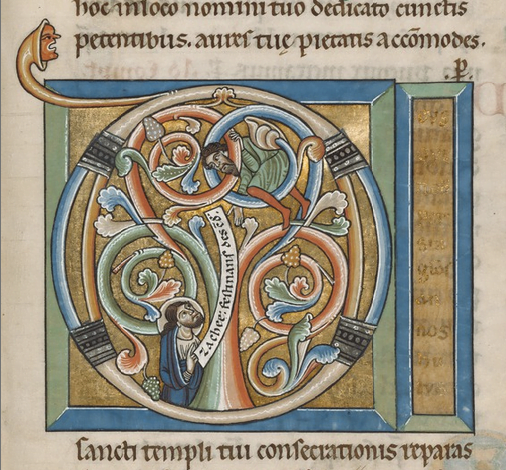 hoc inloco nomini tuo dedicato cunctis
petentibus. aures tuę pietatis accōmodes.
.P.
D
zachee: festinans des cē:
sin
an
nos
sancti templi tui consecrationis reparas